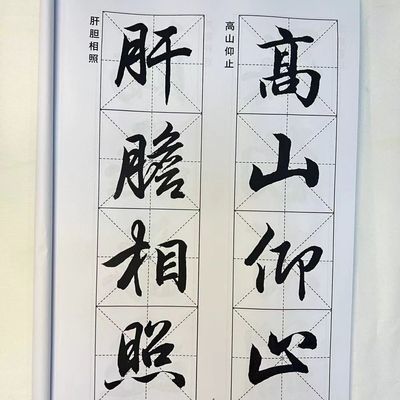 高山仰止
髙山仰止
肝胆相照
肝膽相照